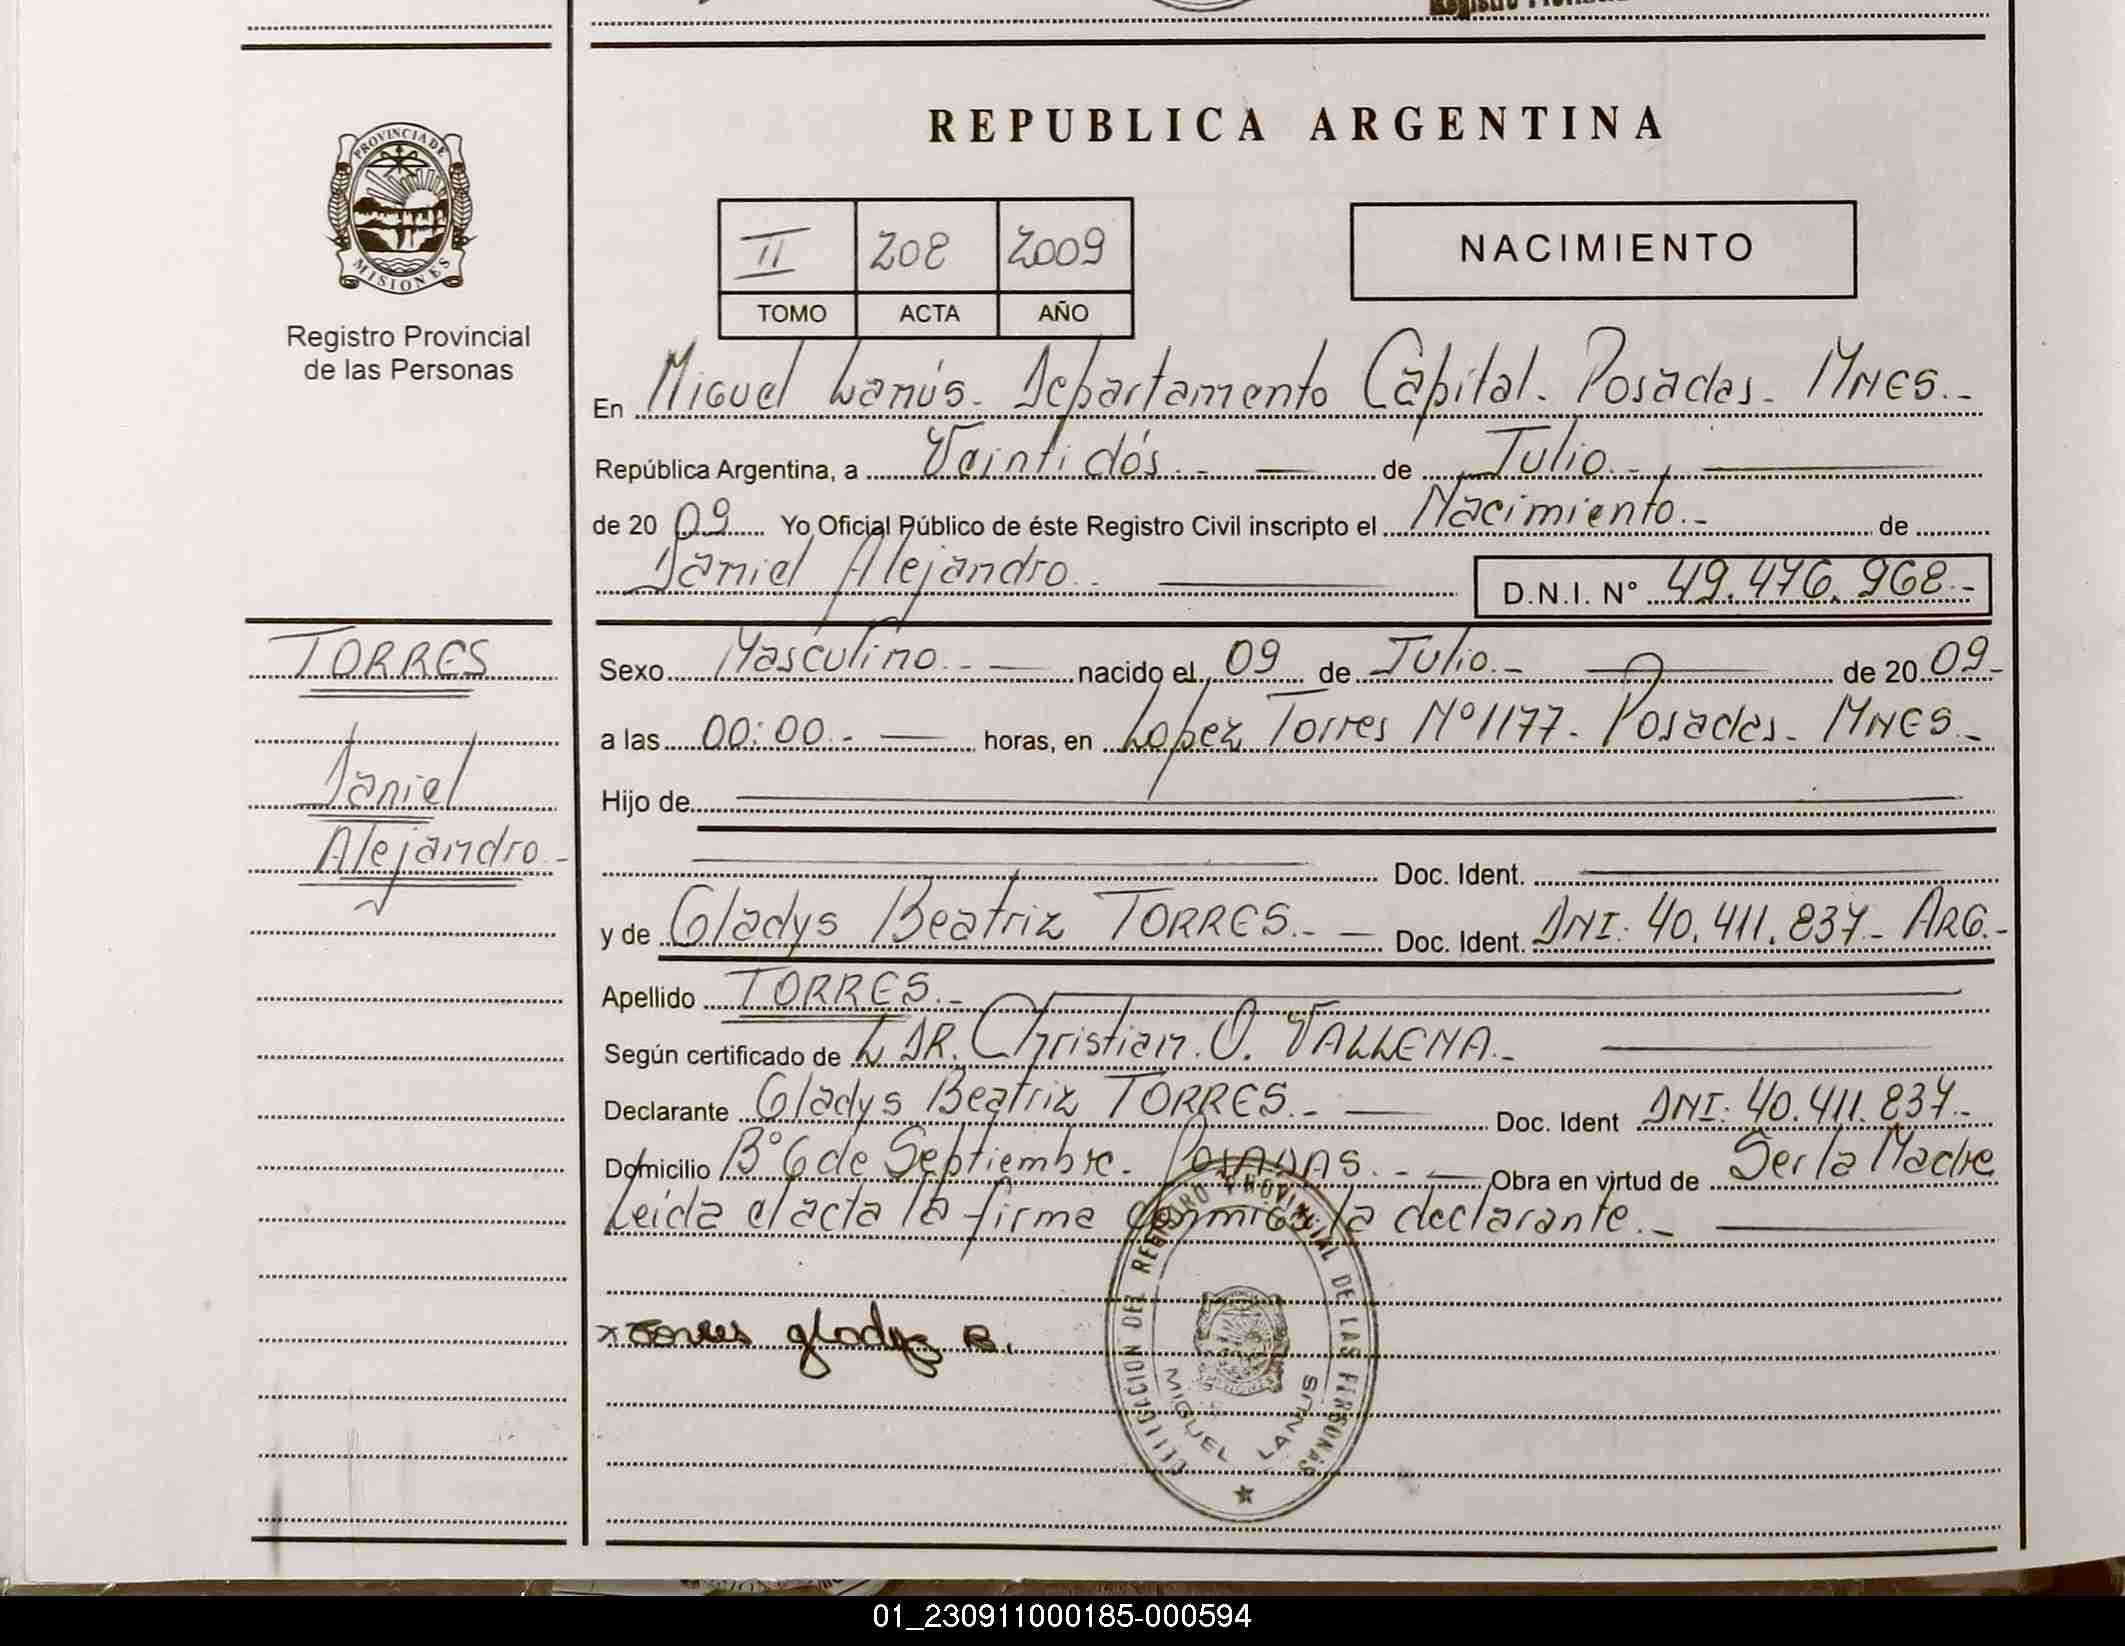 REPUBLICA ARGENTINA
PROVINCIA DE MISIONES
Registro Provincial
de las Personas
II 208 2009
TOMO ACTA AÑO
NACIMIENTO
En Miguel Lanús. Departamento Capital. Posadas. MNES.-
República Argentina, a Veintidós.- de Julio.-
de 20 09 Yo Oficial Público de éste Registro Civil inscripto el Nacimiento.- de
Daniel Alejandro.. D.N.I. Nº 49.476.968.-
TORRES
Daniel
Alejandro.-
Sexo Masculino.- nacido el 09 de Julio.- de 20 09-
a las 00:00.- horas, en Lopez Torres Nº 1177. Posadas. MNES.-
Hijo de
Doc. Ident.
y de Gladys Beatriz TORRES.- Doc. Ident. DNI: 40.411.837- ARG.-
Apellido TORRES.-
Según certificado de L DR. Christian. O. VALLENA.-
Declarante Gladys Beatriz TORRES.- Doc. Ident DNI: 40.411.837.-
Domicilio Bº 6 de Septiembre. POSADAS.- Obra en virtud de Ser la Madre
Leída el acta la firma conmigo la declarante.-
x Torres gladyz B.
DEL REGISTRO PROVINCIAL DE LAS PERSONAS
MIGUEL LANUS
01_230911000185-000594